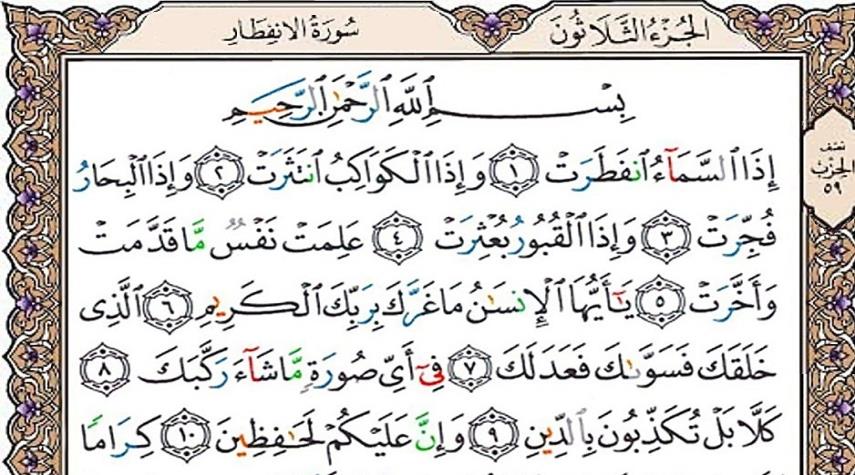 الجُزْءُ الثَّلَاثُونَ
سُورَةُ الانفِطَارِ
بِسْمِ ٱللَّهِ ٱلرَّحْمَٰنِ ٱلرَّحِيمِ
إِذَا ٱلسَّمَآءُ ٱنفَطَرَتْ ١ وَإِذَا ٱلْكَوَاكِبُ ٱنتَثَرَتْ ٢ وَإِذَا ٱلْبِحَارُ
فُجِّرَتْ ٣ وَإِذَا ٱلْقُبُورُ بُعْثِرَتْ ٤ عَلِمَتْ نَفْسٌ مَّا قَدَّمَتْ
وَأَخَّرَتْ ٥ يَٰٓأَيُّهَا ٱلْإِنسَٰنُ مَا غَرَّكَ بِرَبِّكَ ٱلْكَرِيمِ ٦ ٱلَّذِى
خَلَقَكَ فَسَوَّىٰكَ فَعَدَلَكَ ٧ فِىٓ أَىِّ صُورَةٍ مَّا شَآءَ رَكَّبَكَ ٨
كَلَّا بَلْ تُكَذِّبُونَ بِٱلدِّينِ ٩ وَإِنَّ عَلَيْكُمْ لَحَٰفِظِينَ ١٠ كِرَامًا
نصف
الحزب
٥٩